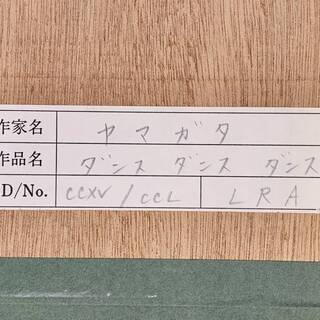 作家名 ヤマガタ
作品名 ダンス ダンス ダンス
D/No. CCXV/CCL LRA